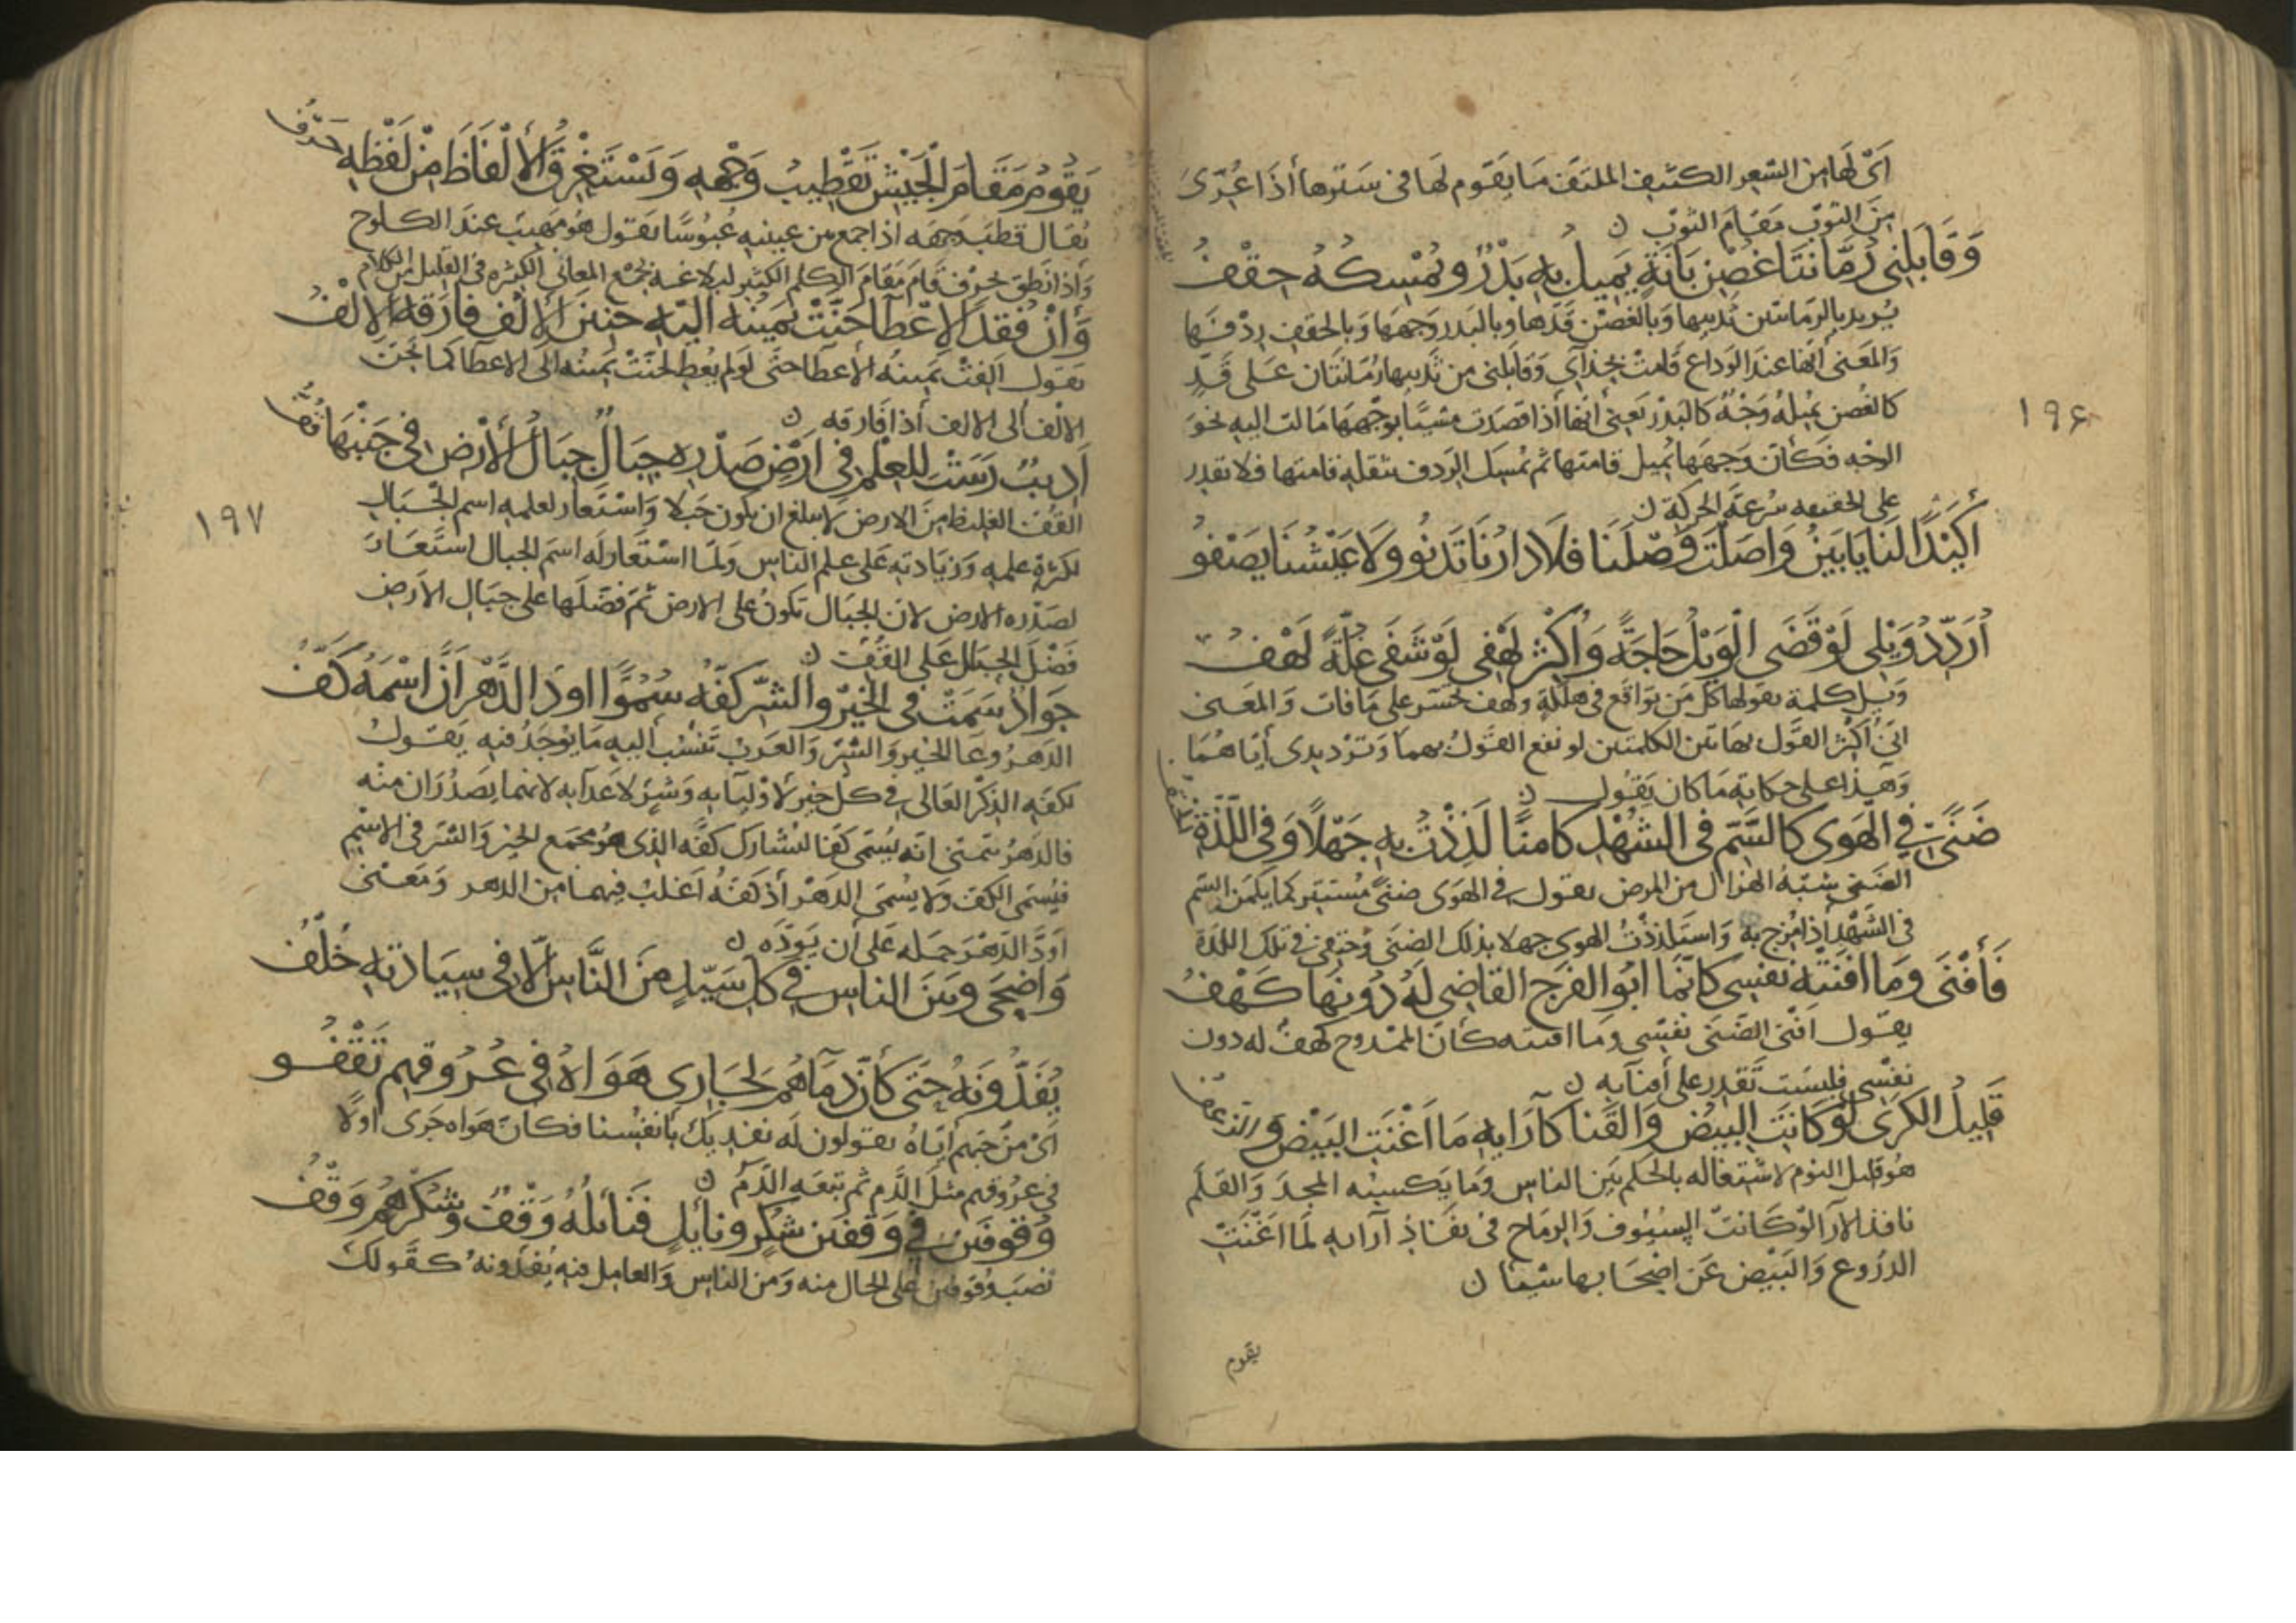 اَىْ لهَا مِن الشعر الكثيف الملتفّ مَا يقوم لهَا فى سَترها أذَا عُرّىَ
مِنَ الثوبِ مَقامَ الثوبِ ن
وَقَابَلَنِى رُمَّانَتَا غُصْنِ بَانَةٍ يَمِيلُ بِهِ بَدْرٌ وَيُمْسِكُهُ حِقْفُ
يُريد بالرمانتين ثدييها وَبالغصْن قَدَّها وبالبَدر وَجههَا وَبالحقف رِدْفَهَا
وَالمعَنى أنها عندَ الوَداع قامَتْ بحذآي وَقابلنى من ثدييها رُمّانتَان عَلى قَدٍّ
كالغُصن يميلهُ وَجْهٌ كالبَدْر يَعنى أنّها أذا قصَدَت مشيًا بوجْهِهَا مَالت اليه نحوَ
الوَجْه فكَأنّ وَجهَهَا يُميل قامتها ثم يُمسك الردف بثقله قامتها فلا تقدر
على الخفيفه سُرعَة الحركة ن
أَكَيْدًا لَنَا يَا بَيْنُ وَاصَلْتَ وَصْلَنَا فَلَا دَارُنَا تَدْنُو وَلَا عَيْشُنَا يَصْفُو
اُرَدِّدُ وَيْلِى لَوْ قَضَى الْوَيْلُ حَاجَةً وَاُكْثِرُ لَهْفِى لَوْ شَفَى غُلّةً لَهْفُ
وَيل كلمة يقولها كل مَن يَواقَع فى هلَكة ولهف تحسّر على مَا فات وَالمعَنى
انىّ اُكْثِرُ القَول بهَاتَين الكلمتين لو نفع القَولُ بهما وَترْديدى أيّاهُمَا
وَهَذا على حكاية مَا كان يَقُول ن
ضَنًى فِى الهَوى كَالسَّمِّ فى الشَهْدِ كَامِنًا لَذِذْتُ بِهِ جَهْلًا وَفِى اللَّذَّةِ الحَتْفُ
الضَنى شبْهُ الهُزال من المرض يقول فى الهَوَى ضنًى مُستتر كما يكمن السّم
فى الشَهْد أذا مُزج به وَاستَلذذْتُ الهوى جهلا بذلك الضنَى وحتفى فى تلك اللذة
فَأَفْنَى وَمَا أفْنَتْهُ نَفْسِى كَاَنَّمَا ابُوا الفَرَج القَاضِى لَهُ دُونَهَا كَهْفُ
يقول أفنى الضَنَى نفسى وما افنته كأنّ الممْدوح كهفٌ له دون
نفسى فليسَت تقدر على أفنآيه ن
قَلِيلُ الكَرَى لَوْ كَانَتِ البِيْضُ وَالقَنَا كَآرَايِهِ مَا اَغْنَتِ البَيْضُ وَالزَّغْفُ
هُو قليل النوم لاشتغاله بالحكم بَين الناس وَمَا يَكسِبُه المجدَ وَالقلَم
نافذ الآرآ لوْ كَانتْ السُيُوف وَالرمَاح فى نفَاذ آرايه لمَا اغنَتْ
الدرُوع وَالبَيْض عَن اصْحَابها شيئا ن
يقوم
١٩٤
يَقُومُ مَقَامَ الْجَيْشِ تَقْطِيبُ وَجْهِهِ وَيَسْتَغْرِقُ الأَلْفَاظَ مِنْ لَفْظِهِ حَرْفُ
يُقال قطّبَ وَجهَه اذا جمع بين عينيه عُبُوسًا يقول هُو مَهيبٌ عندَ الكلوح
وَأذا نَطَق بحرْف قامَ مَقَامَ الكلم الكثير لبلاغته يجمْع المعانى الكثيرة فى القليل من الكلام
وَاِنْ فَقَدَ الاِعْطَآ حَنَّتْ يَمِينُهُ اليْهِ حَنِينَ الاِلْفِ فَارَقَهُ الاِلْفُ
يقول الفتْ يمينُه الأعطآ حتى لو لم يُعط لحنّتْ يمينُه الى الاعطآ كما يحنّ
الالْف ألى الالف أذا فارقه ن
اَدِيبٌ رَسَتْ لِلعِلْمِ فِى اَرْضِ صَدْرِهِ جِبَالٌ جِبَالُ الأَرْضِ فى جَنْبِهَا قُفُّ
القفّ الغليظ مِنَ الارض لا يبلغ ان يكون جَبلا وَاسْتَعار لعلمه اسم الجبال
لكثرة علمه وَزيَادته عَلى علم الناس وَلمّا اسْتَعار لَه اسمَ الجبال استَعارَ
لصَدْره الارض لانّ الجبَال تكونُ على الارض ثم فضّلَها على جبَال الأرض
فَضْلَ الجبَال عَلى القُفِّ ن
جَوَادٌ سَمَتْ فِى الخَيْرِ وَالشَّرِّ كَفُّهُ سُمُوًّا اودَّ الدَّهْرَ اَنَّ اسْمَهُ كَفُّ
الدَهرُ وعَآ الخير وَالشرّ وَالعَربُ تَنسُب اليه مَا يُوجَدُ فيه يَقولُ
لكفّه الذِكرُ العَالى فى كل خير لأوْليآيه وَشرٍّ لأعدآيه لانهما يَصدُرَان منْه
فالدَهرُ يتمنى انّه يُسَمّى كفّا ليُشارك كفّه الذى هُو مجمَع الخير وَالشرّ فى الاسْم
فيُسمَى الكفّ وَلا يُسْمَى الدَهْر أذ كفّهُ اغلبُ فيهما من الدهر وَمعْنى
اَودَّ الدَهْرَ حمَله عَلى أن يَودَّه ن
وَاَضْحَى وَبَيْنَ النَّاسِ فِى كُلِّ سَيِّدٍ مِنَ النَّاسِ اِلّا فى سِيَادَتِهِ خُلْفُ
يُفَدُّونَهُ حَتَى كَأَنَّ دِمَآهُمْ لِجَارِى هَوَاهُ فِى عُرُوقِهِمِ تَقْفُو
اَىْ مِنْ حُبّهم أيّاهُ يقولون لَه نفديكَ بأنفُسنا فكأنّ هَواه جَرى أولًا
فى عرُوقهم مثلَ الدّم ثم تبعَه الدَمُ ن
وُقُوفَيْنِ فِى وَقْفَيْنِ شُكْرٍ وَنَايِلٍ فَنَائلُهُ وَقْفٌ وَشُكْرُهُمْ وَقْفُ
نصَبَ وُقوفَين على الحال منه وَمن الناس وَالعامل فيه يُفَدّونهُ كقَولكَ
١٩٧